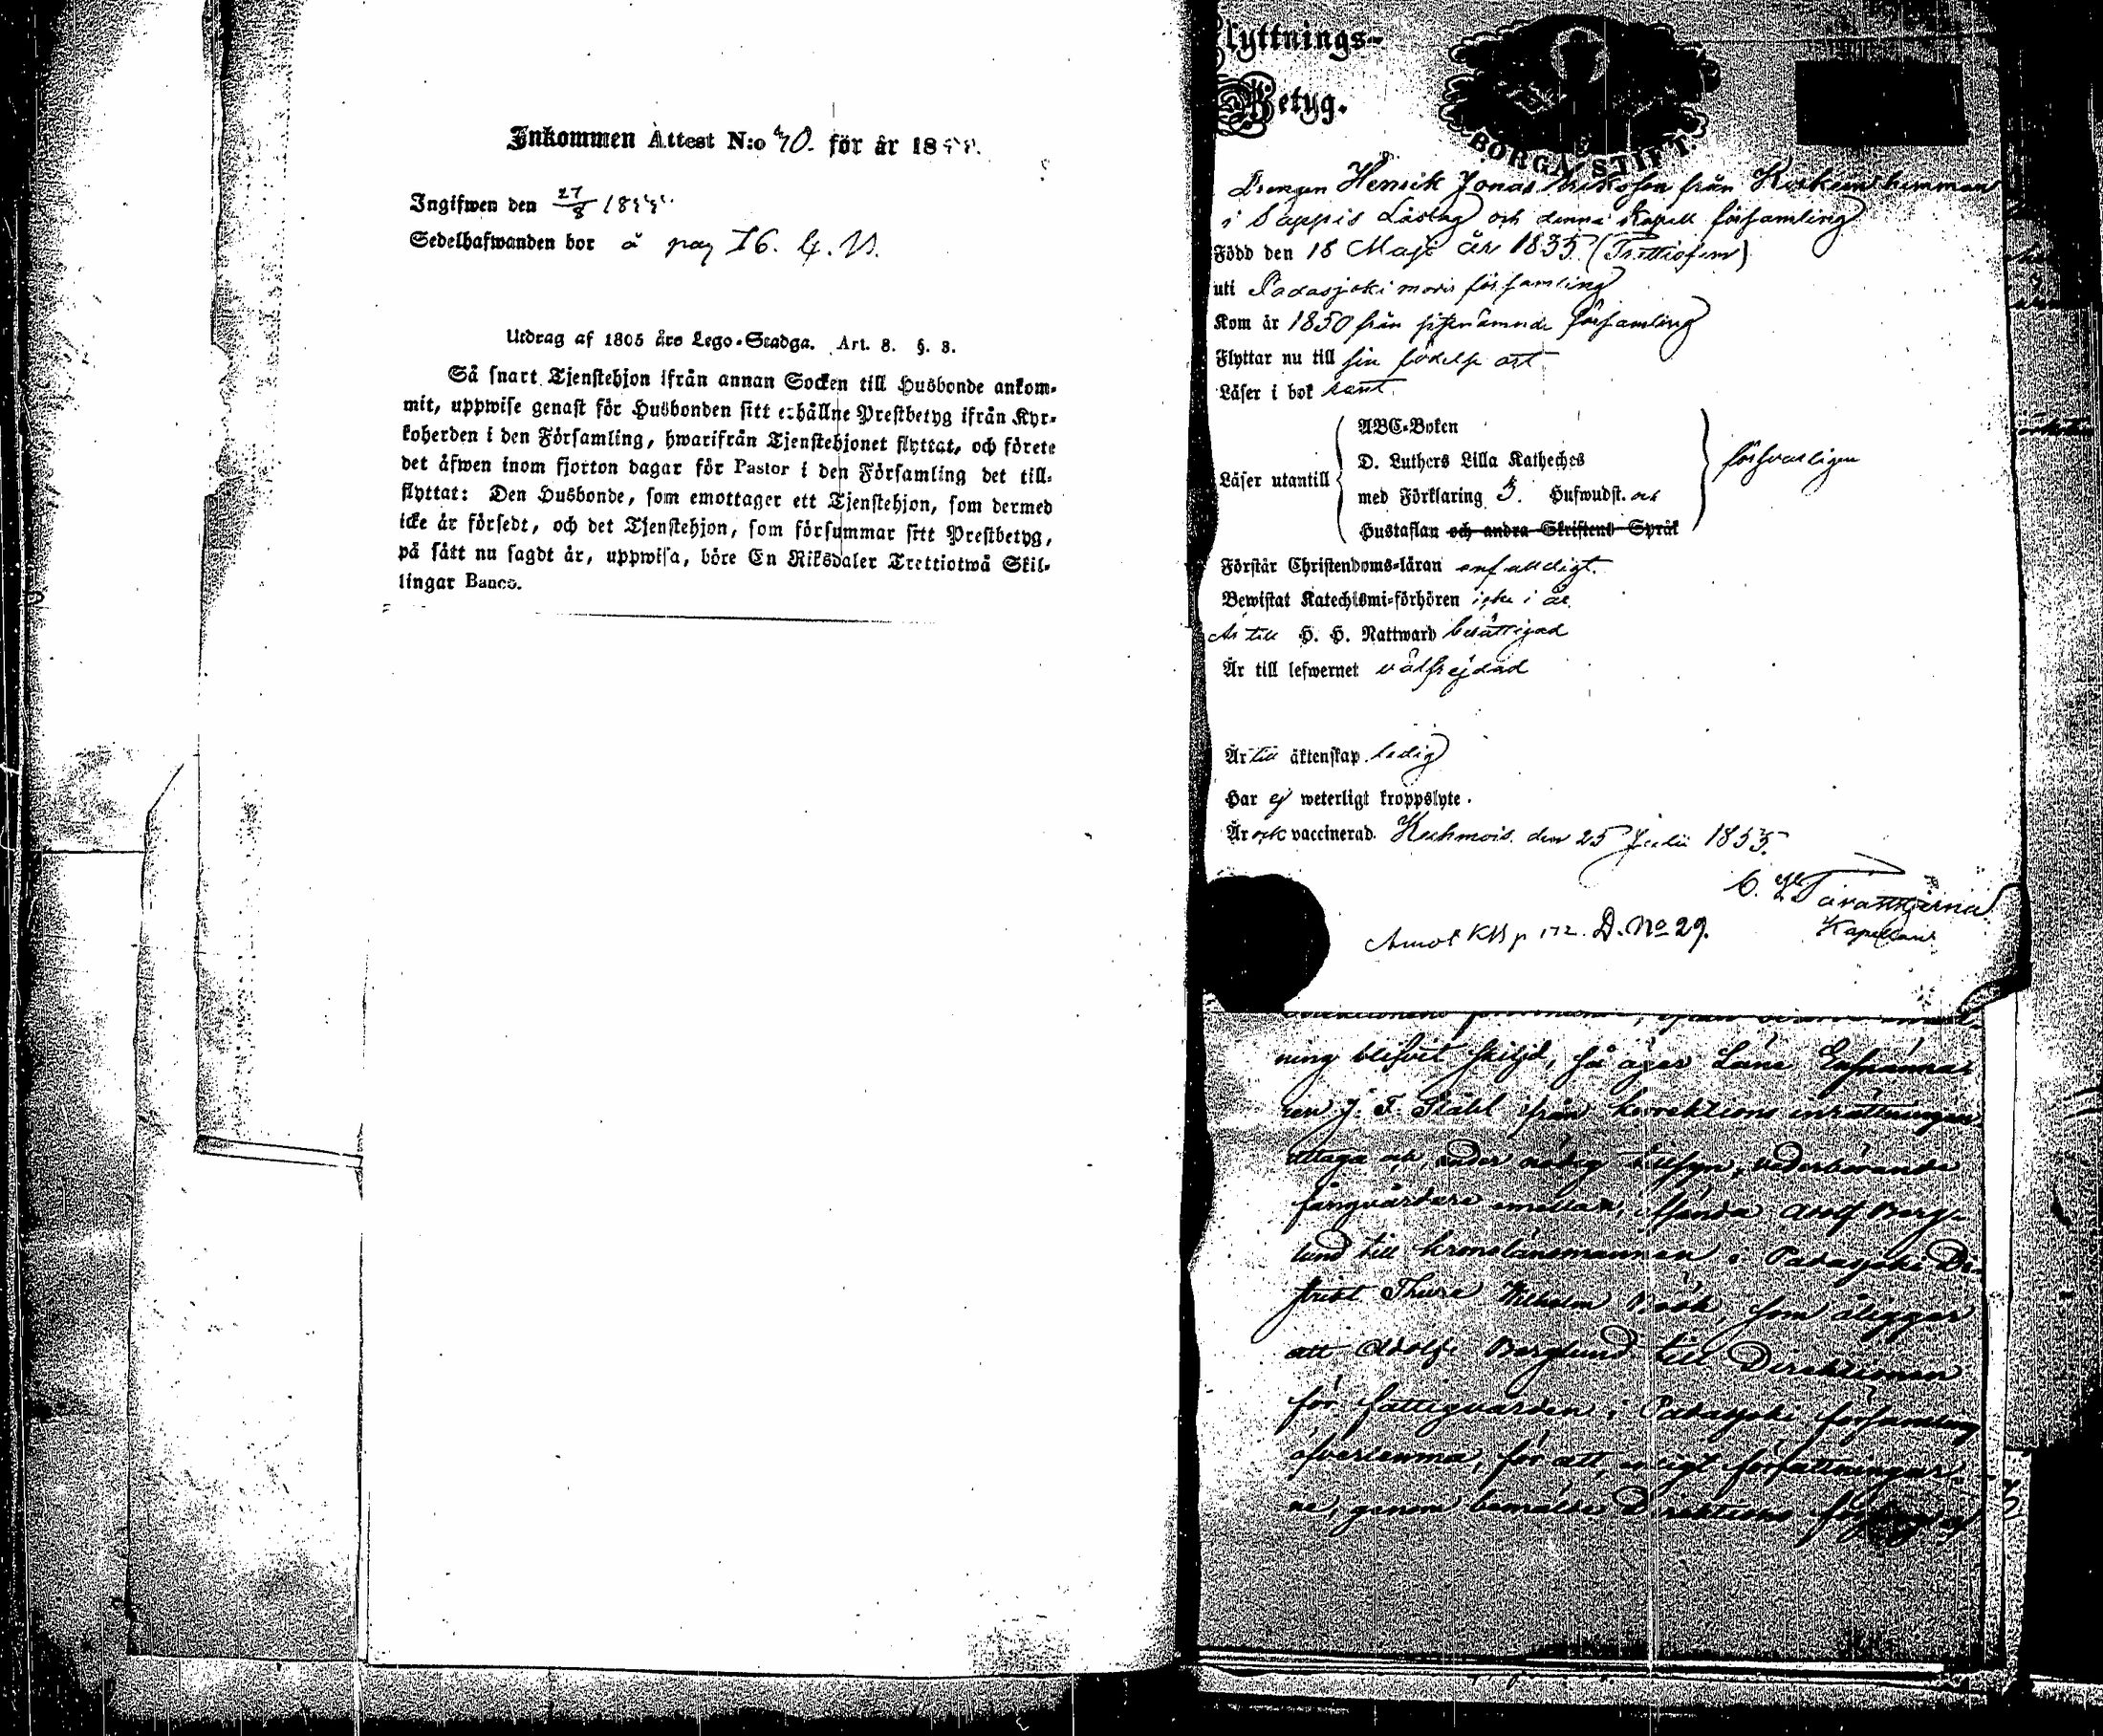 Inkommen Attest N:o 40. för år 1855.
Ingifwen den 27/8 1855.
Sedelhafwanden bor å pag 76.
Utdrag af 1805 års Lego-Stadga. Art. 8. §. 3.
Så snart Tjenstehjon ifrån annan Socken till Husbonde ankom-
mit, uppwise genast för Husbonden sitt erhållne Prestbetyg ifrån Kyr-
koherden i den Församling, hwarifrån Tjenstehjonet flyttat, och förete
det äfwen inom fjorton dagar för Pastor i den Församling det till-
flyttat: Den Husbonde, som emottager ett Tjenstehjon, som dermed
icke är försedt, och det Tjenstehjon, som försummar sitt Prestbetyg,
på sätt nu sagdt är, uppwisa, böte En Riksdaler Trettiotwå Skil-
lingar Banco.
Flyttnings-
Betyg.
BORGÅ STIFT.
Drengen Henrik Jonas Eriksson från Koskems hemman
i Sappis Låstag och denna Kapell församling
Född den 18 Maji år 1835. (Trettiofem)
uti Padasjoki moderförsamling
Kom år 1850 från sistnämnde församling
Flyttar nu till sin födelse ort
Läser i bok rent.
Läser utantill
ABC-Boken
D. Luthers Lilla Katheches
med Förklaring 3. Hufwudst. och
Hustaflan och andra Skriftens Språk
försvarligen
Förstår Christendoms-läran enfaldigt.
Bewistat Katechismi-förhören icke i år.
Är till H. H. Nattward berättigad
Är till lefwernet välfrejdad
Är till äktenskap ledig
Har ej weterligt kroppslyte.
Är ock vaccinerad. Kuhmois den 25 Julii 1855.
Kapellan
Annot KB p 172. D. No 29.
ning blifvit skiljd, så äger Läns
J. F. Ståhl från korrektions inrättningen
uttaga och, under nödig tillsyn, vederbörande
fångvårdare emellan, afsända Adolf Berg-
lund till kronolänsmannen i Padasjoki Di-
strikt Thure Wilhelm Höök, som åligger
att Adolf Berglund till Direktionen
för fattigvården i Padasjoki församling
öfverlemna, för att, enligt författningar-
ne, genom bemälde Direktions försorg